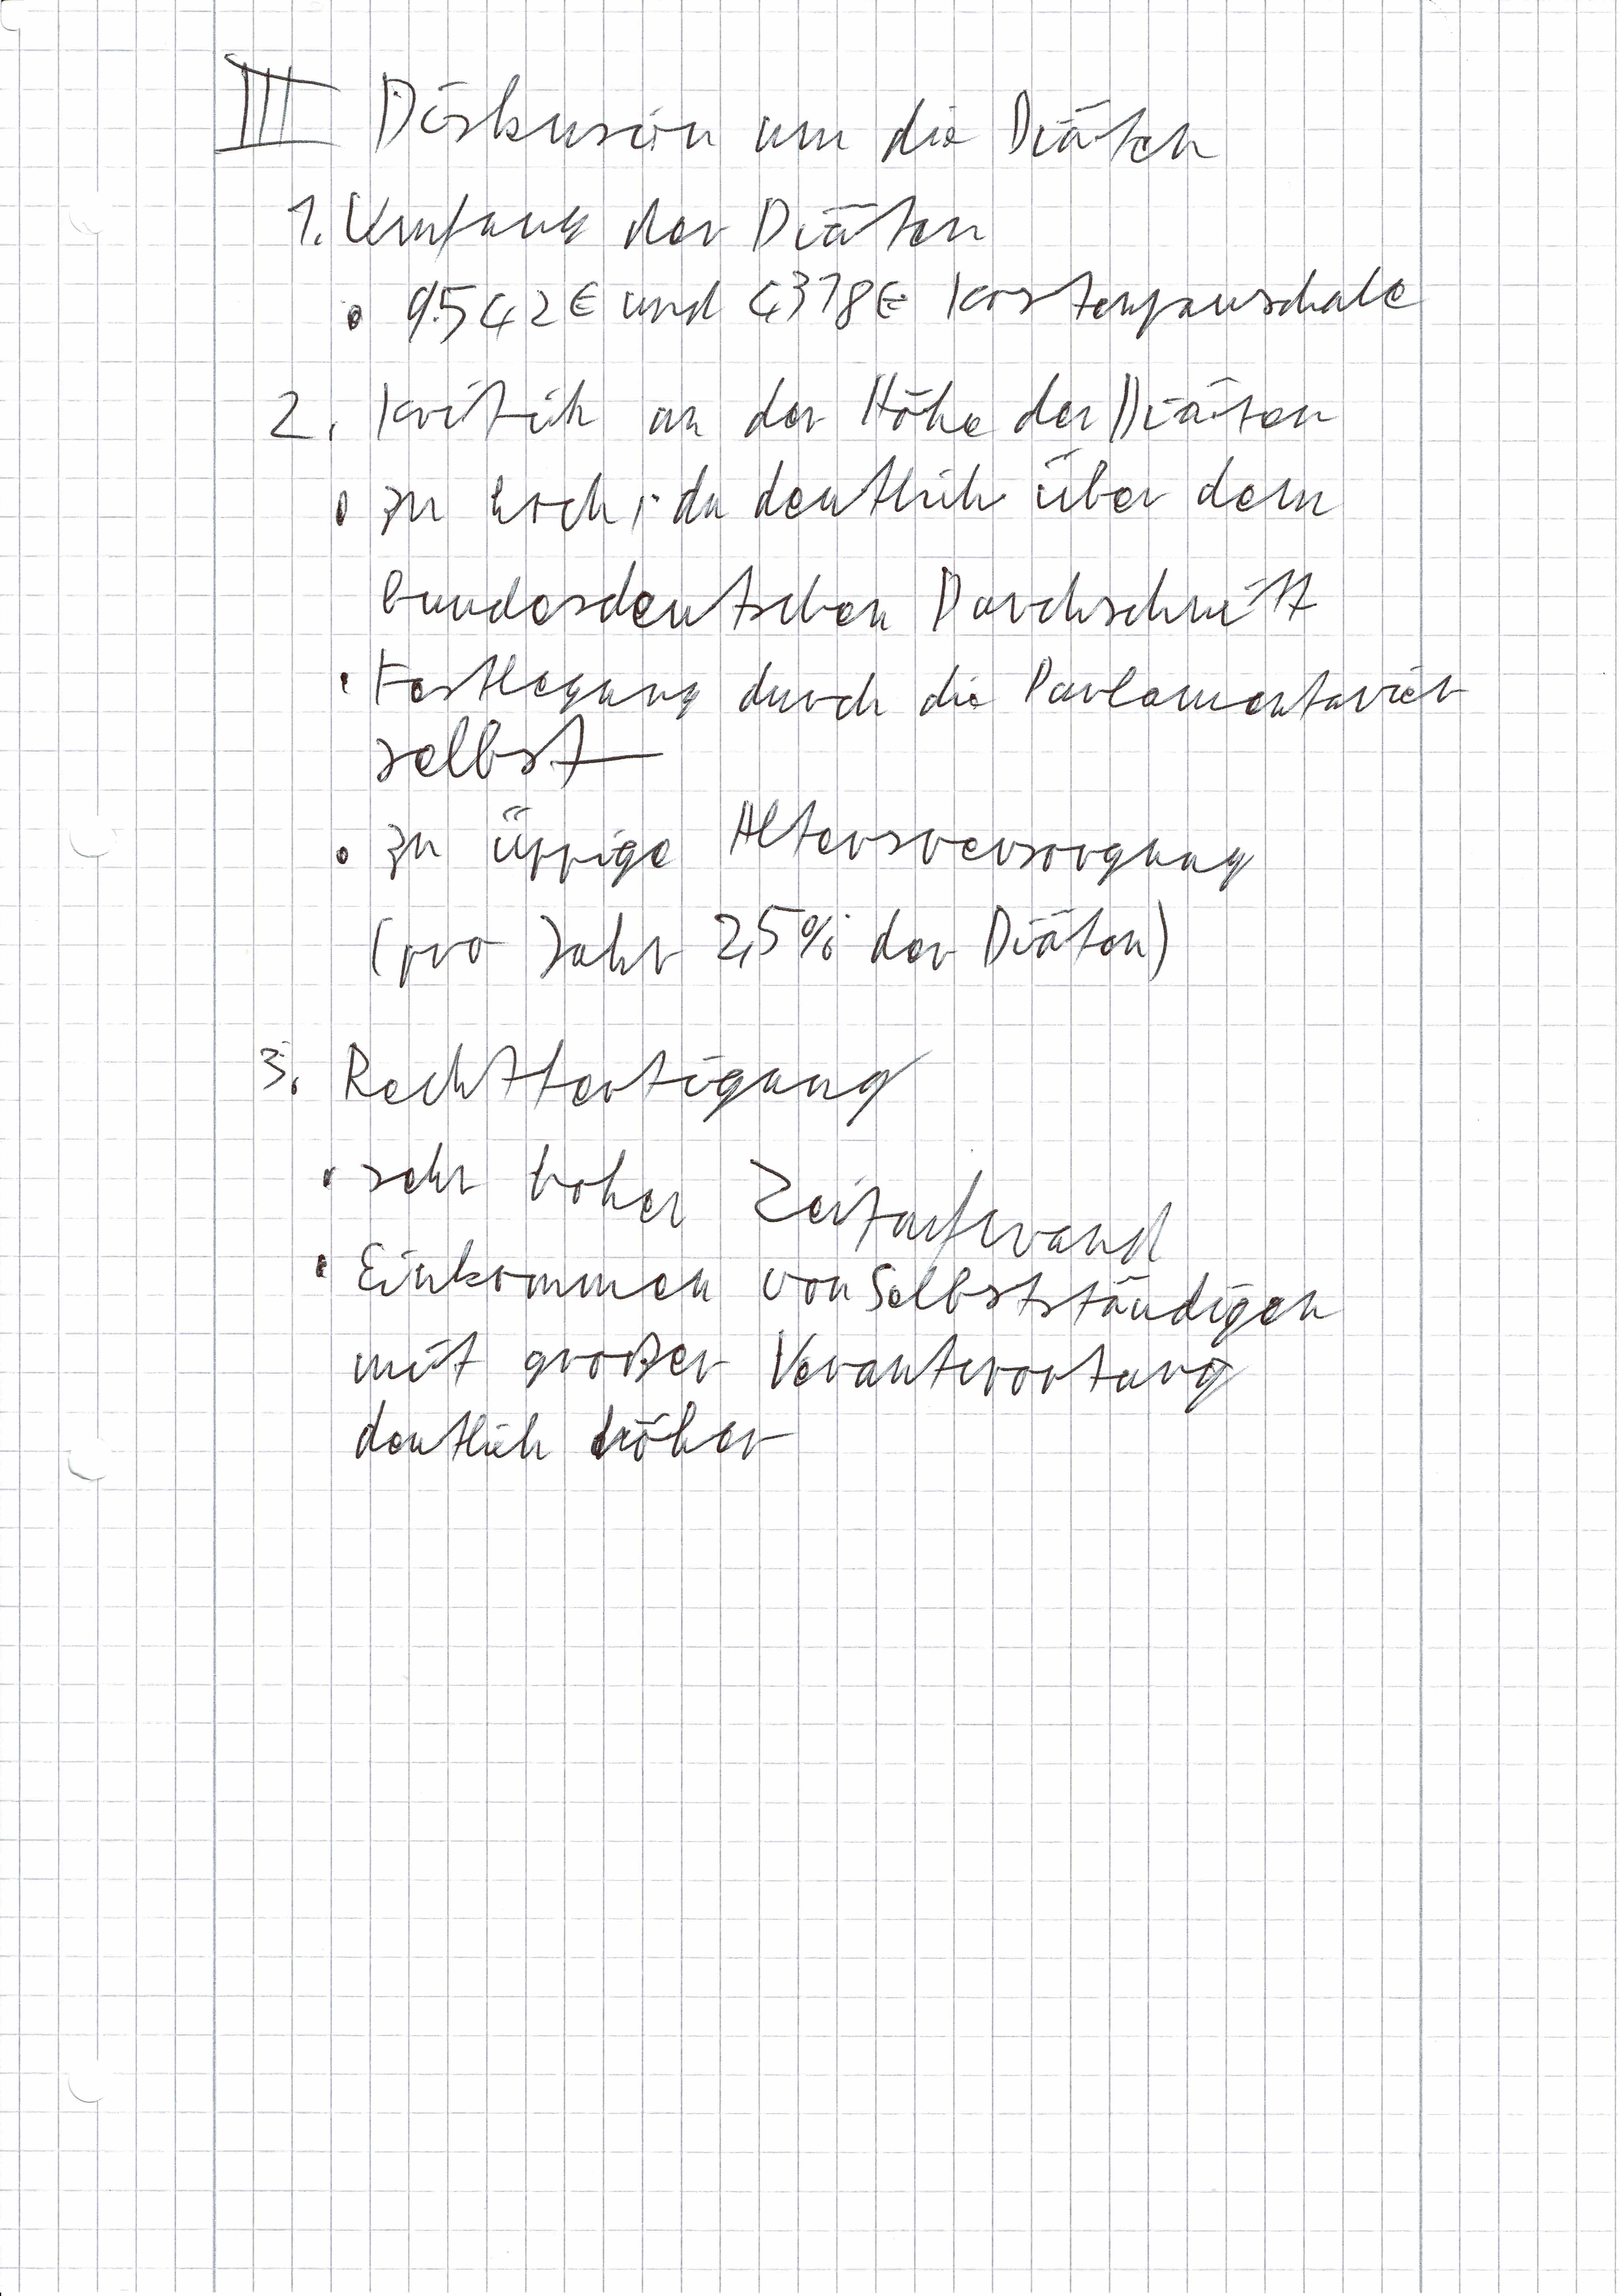 III Diskusion um die Diäten
1. Umfang der Diäten
• 9.542€ und 4378€ Kostenpauschale
2. Kritik an der Höhe der Diäten
• zu hoch, da deutlich über dem
bundesdeutschen Durchschnitt
• Festlegung durch die Parlamentarier
selbst
• zu üppige Altersversorgung
(pro Jahr 2,5% der Diäten)
3. Rechtfertigung
• sehr hoher Zeitaufwand
• Einkommen von Selbstständigen
mit großer Verantwortung
deutlich höher